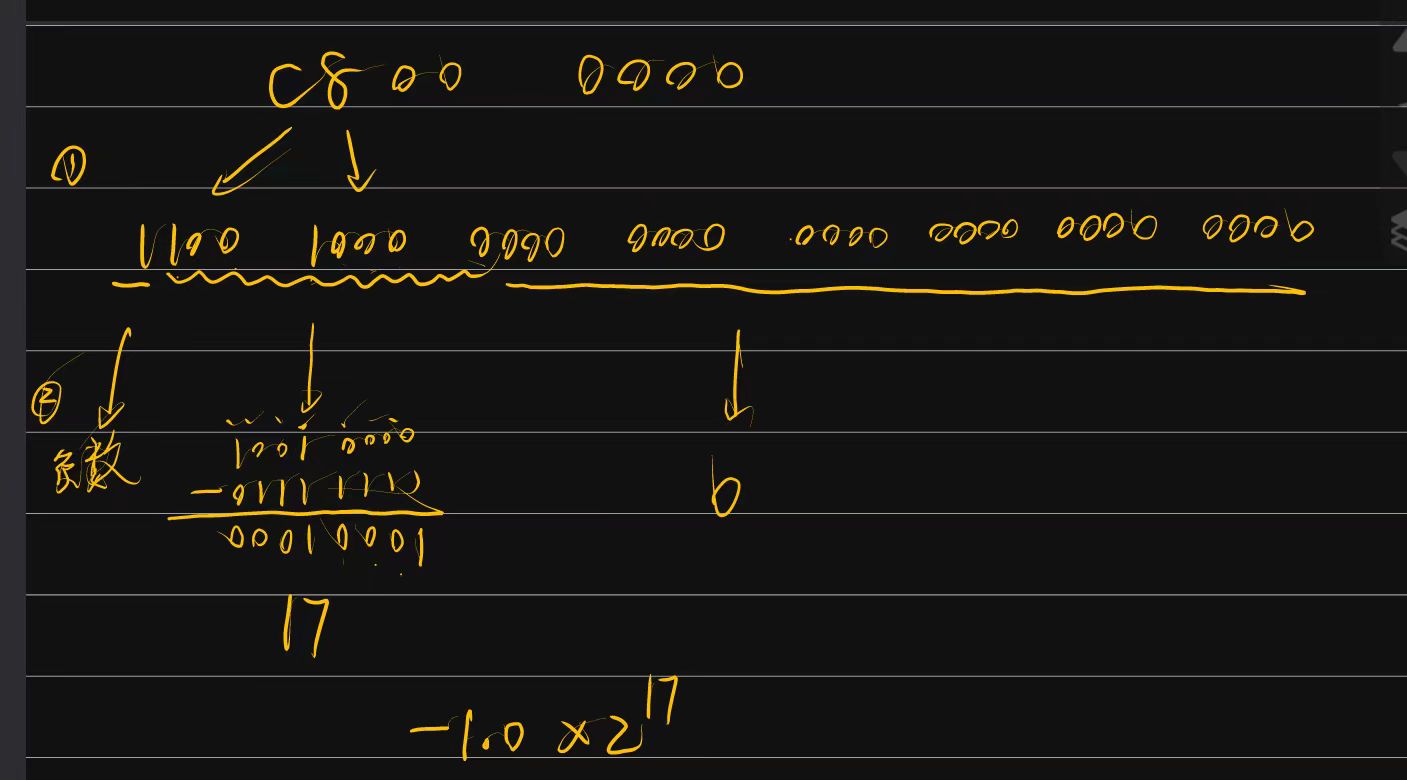 C800 0000
①
1100 1000 0000 0000 0000 0000 0000 0000
②
负数
1001 0000
- 01111111
00010001
0
17
-1.0 × 2^17